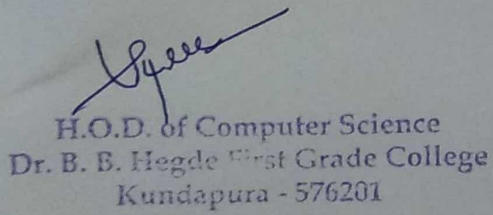 H.O.D. of Computer Science
Dr. B. B. Hegde First Grade College
Kundapura - 576201